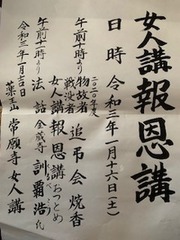 女人講報恩講
日時 令和三年一月十六日(土)
午前十時より
二〇二〇年度
物故者
戦没者
追弔会焼香
女人講報恩講おつとめ
午前十一時より
法話
訓覇浩氏
令和三年一月吉日
薬王山 常願寺 女人講